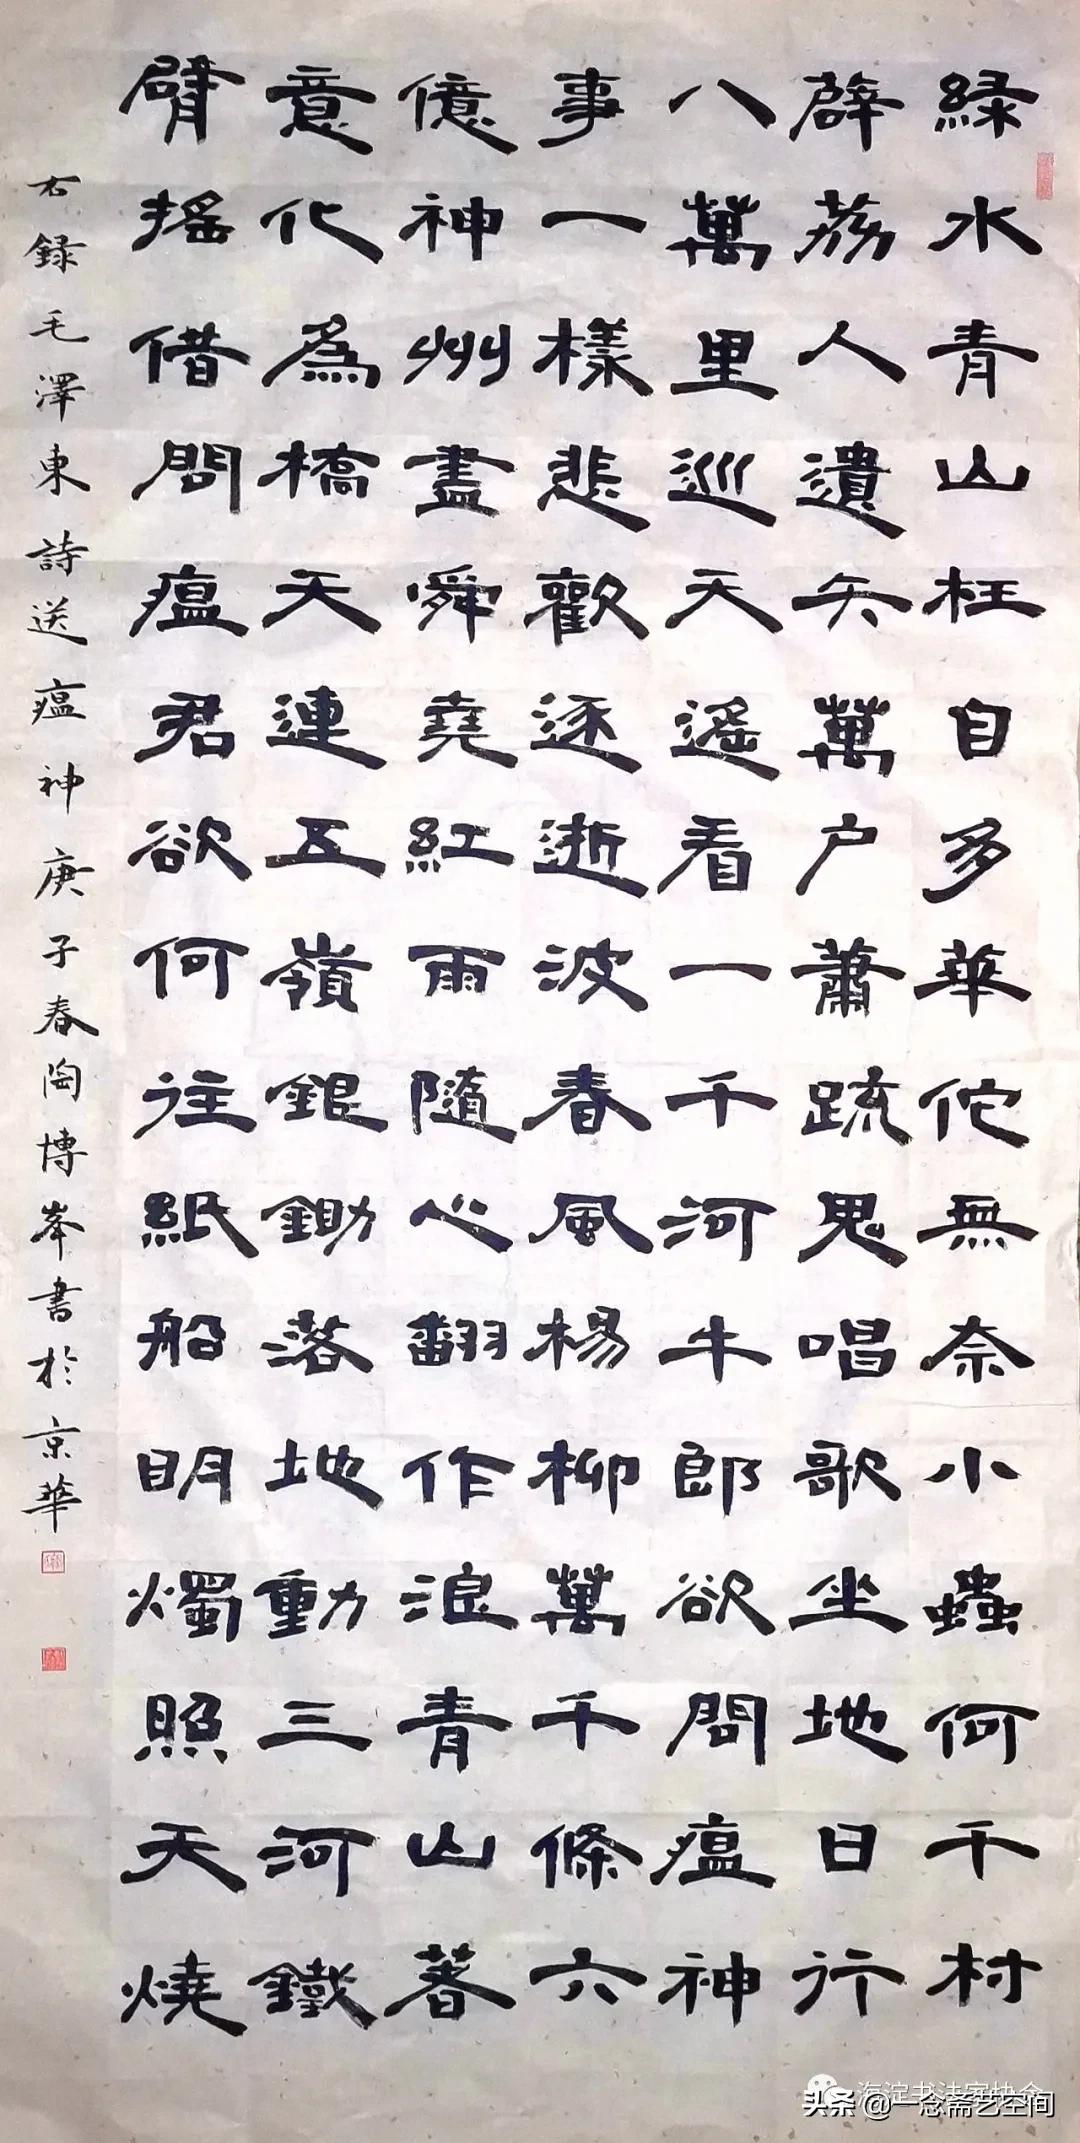 緑水青山枉自多華佗無奈小蟲何千村
薜荔人遺矢萬户蕭疏鬼唱歌坐地日行
八萬里巡天遥看一千河牛郎欲問瘟神
事一樣悲歡逐逝波春風楊柳萬千條六
億神州盡舜堯紅雨隨心翻作浪青山著
意化爲橋天連五嶺銀鋤落地動三河鐵
臂摇借問瘟君欲何往紙船明燭照天燒
右録毛澤東詩送瘟神庚子春陶博峯書於京華
海淀书法家协会
头条 @一念斋艺空间